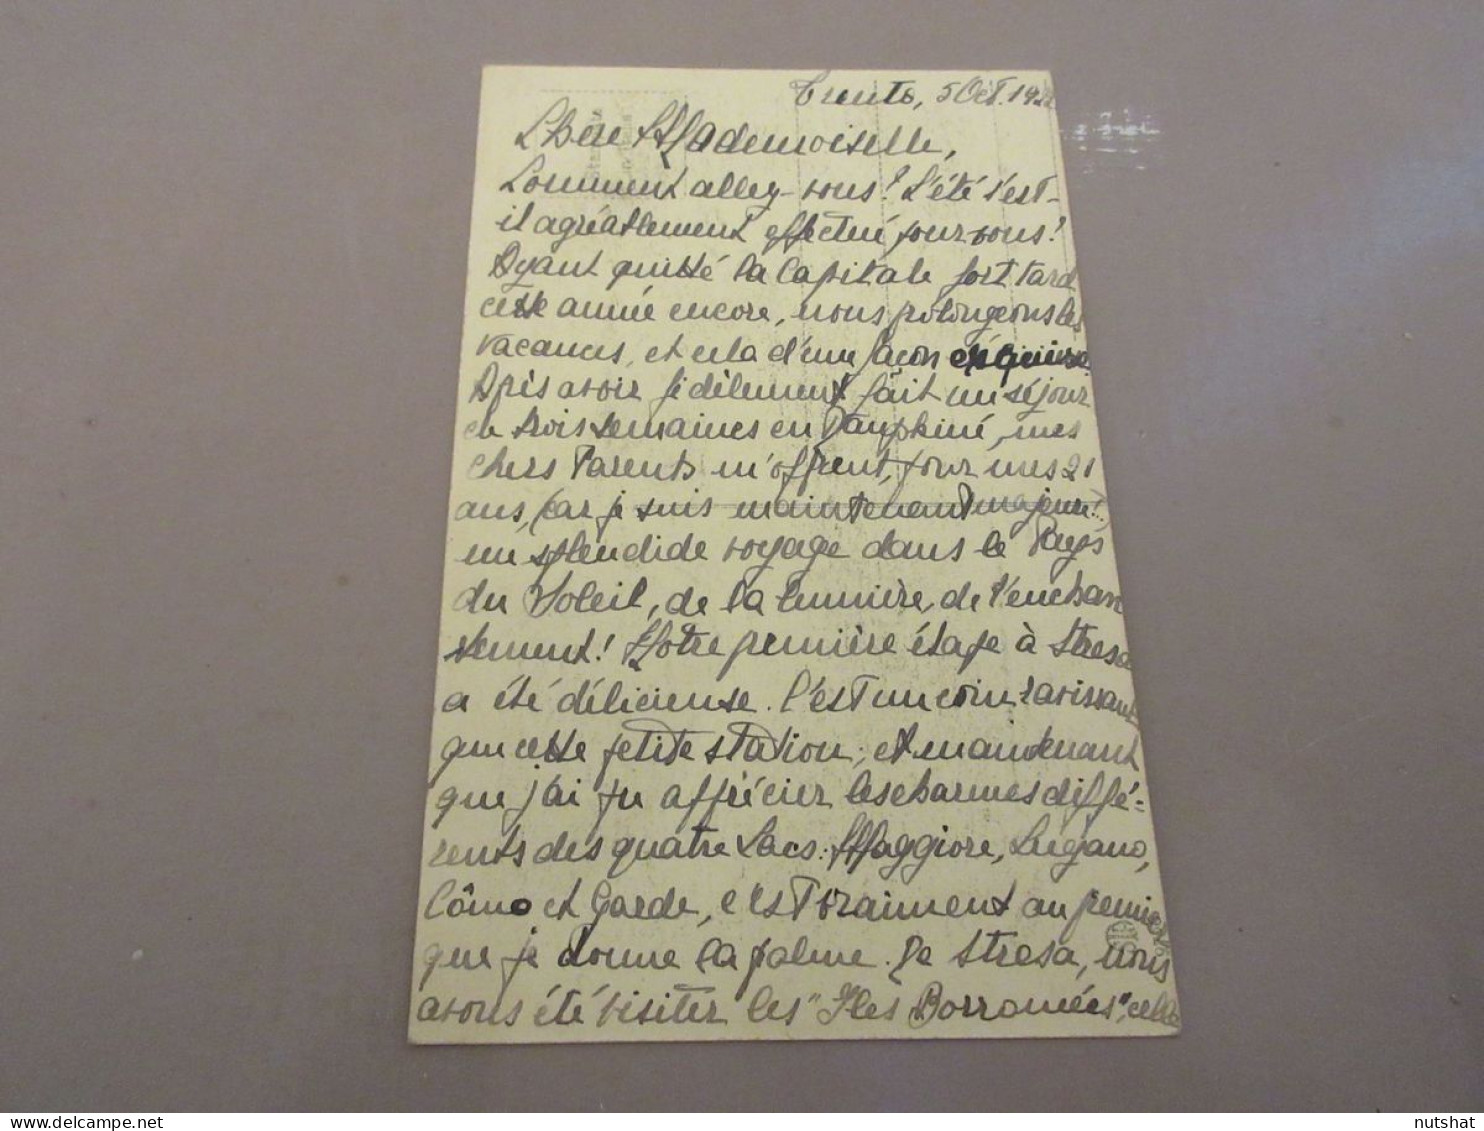 Trento, 5 Oct. 192
Chère Mademoiselle,
Comment allez-vous? L'été s'est-
il agréablement effectué pour vous?
Ayant quitté la Capitale fort tard
cette année encore, nous prolongeons les
vacances, et cela d'une façon exquise.
Après avoir fidèlement fait un séjour
de trois semaines en Dauphiné, mes
chers Parents m'offrent, pour mes 21
ans, (car je suis maintenant majeure!)
un splendide voyage dans le Pays
du Soleil, de la lumière, de l'enchan
tement! Notre première étape à Stresa
a été délicieuse. C'est un coin ravissant
que cette petite station; et maintenant
que j'ai pu apprécier les charmes diffé-
rents des quatre Lacs: Maggiore, Lugano,
Cômo et Garde, c'est vraiment au premier
que je donne la palme. De Stresa, nous
avons été visiter les "Iles Borromées", cela
nutshat